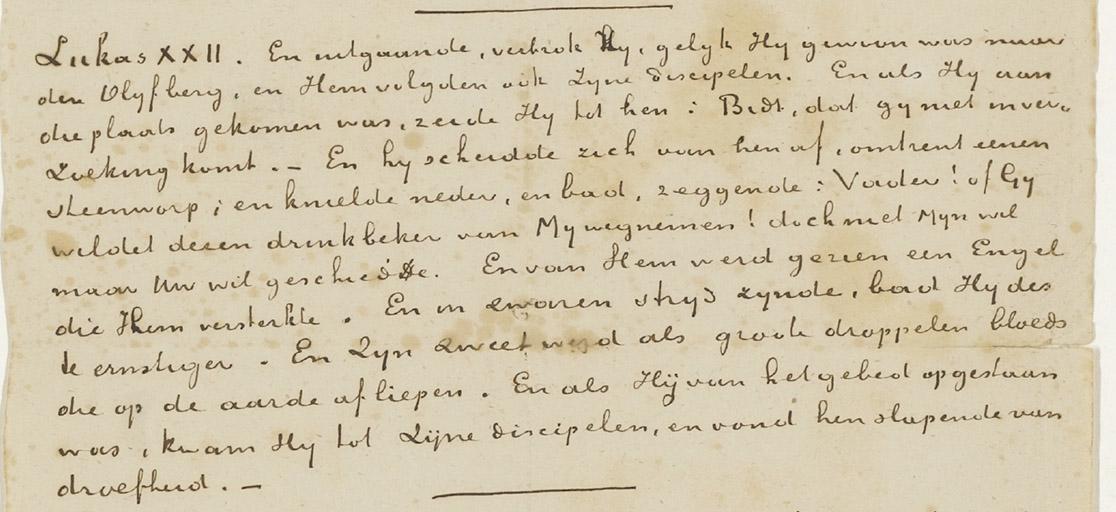 Lukas XXII. En uitgaande, vertrok Hy, gelyk Hy gewoon was naar
den Olyfberg, en Hem volgden ook Zyne discipelen. En als Hy aan
die plaats gekomen was, zeide Hy tot hen: Bidt, dat gy niet in ver-
zoeking komt. — En hy scheidde zich van hen af, omtrent eenen
steenworp; en knielde neder, en bad, zeggende: Vader! of Gy
wildet dezen drinkbeker van My wegnemen! doch niet Myn wil
maar Uw wil geschiede. En van Hem werd gezien een Engel
die Hem versterkte. En in zwaren stryd zynde, bad Hy des
te ernstiger. En Zyn zweet werd als groote droppelen bloeds
die op de aarde afliepen. En als Hij van het gebed opgestaan
was, kwam Hy tot Zijne discipelen, en vond hen slapende van
droefheid. —